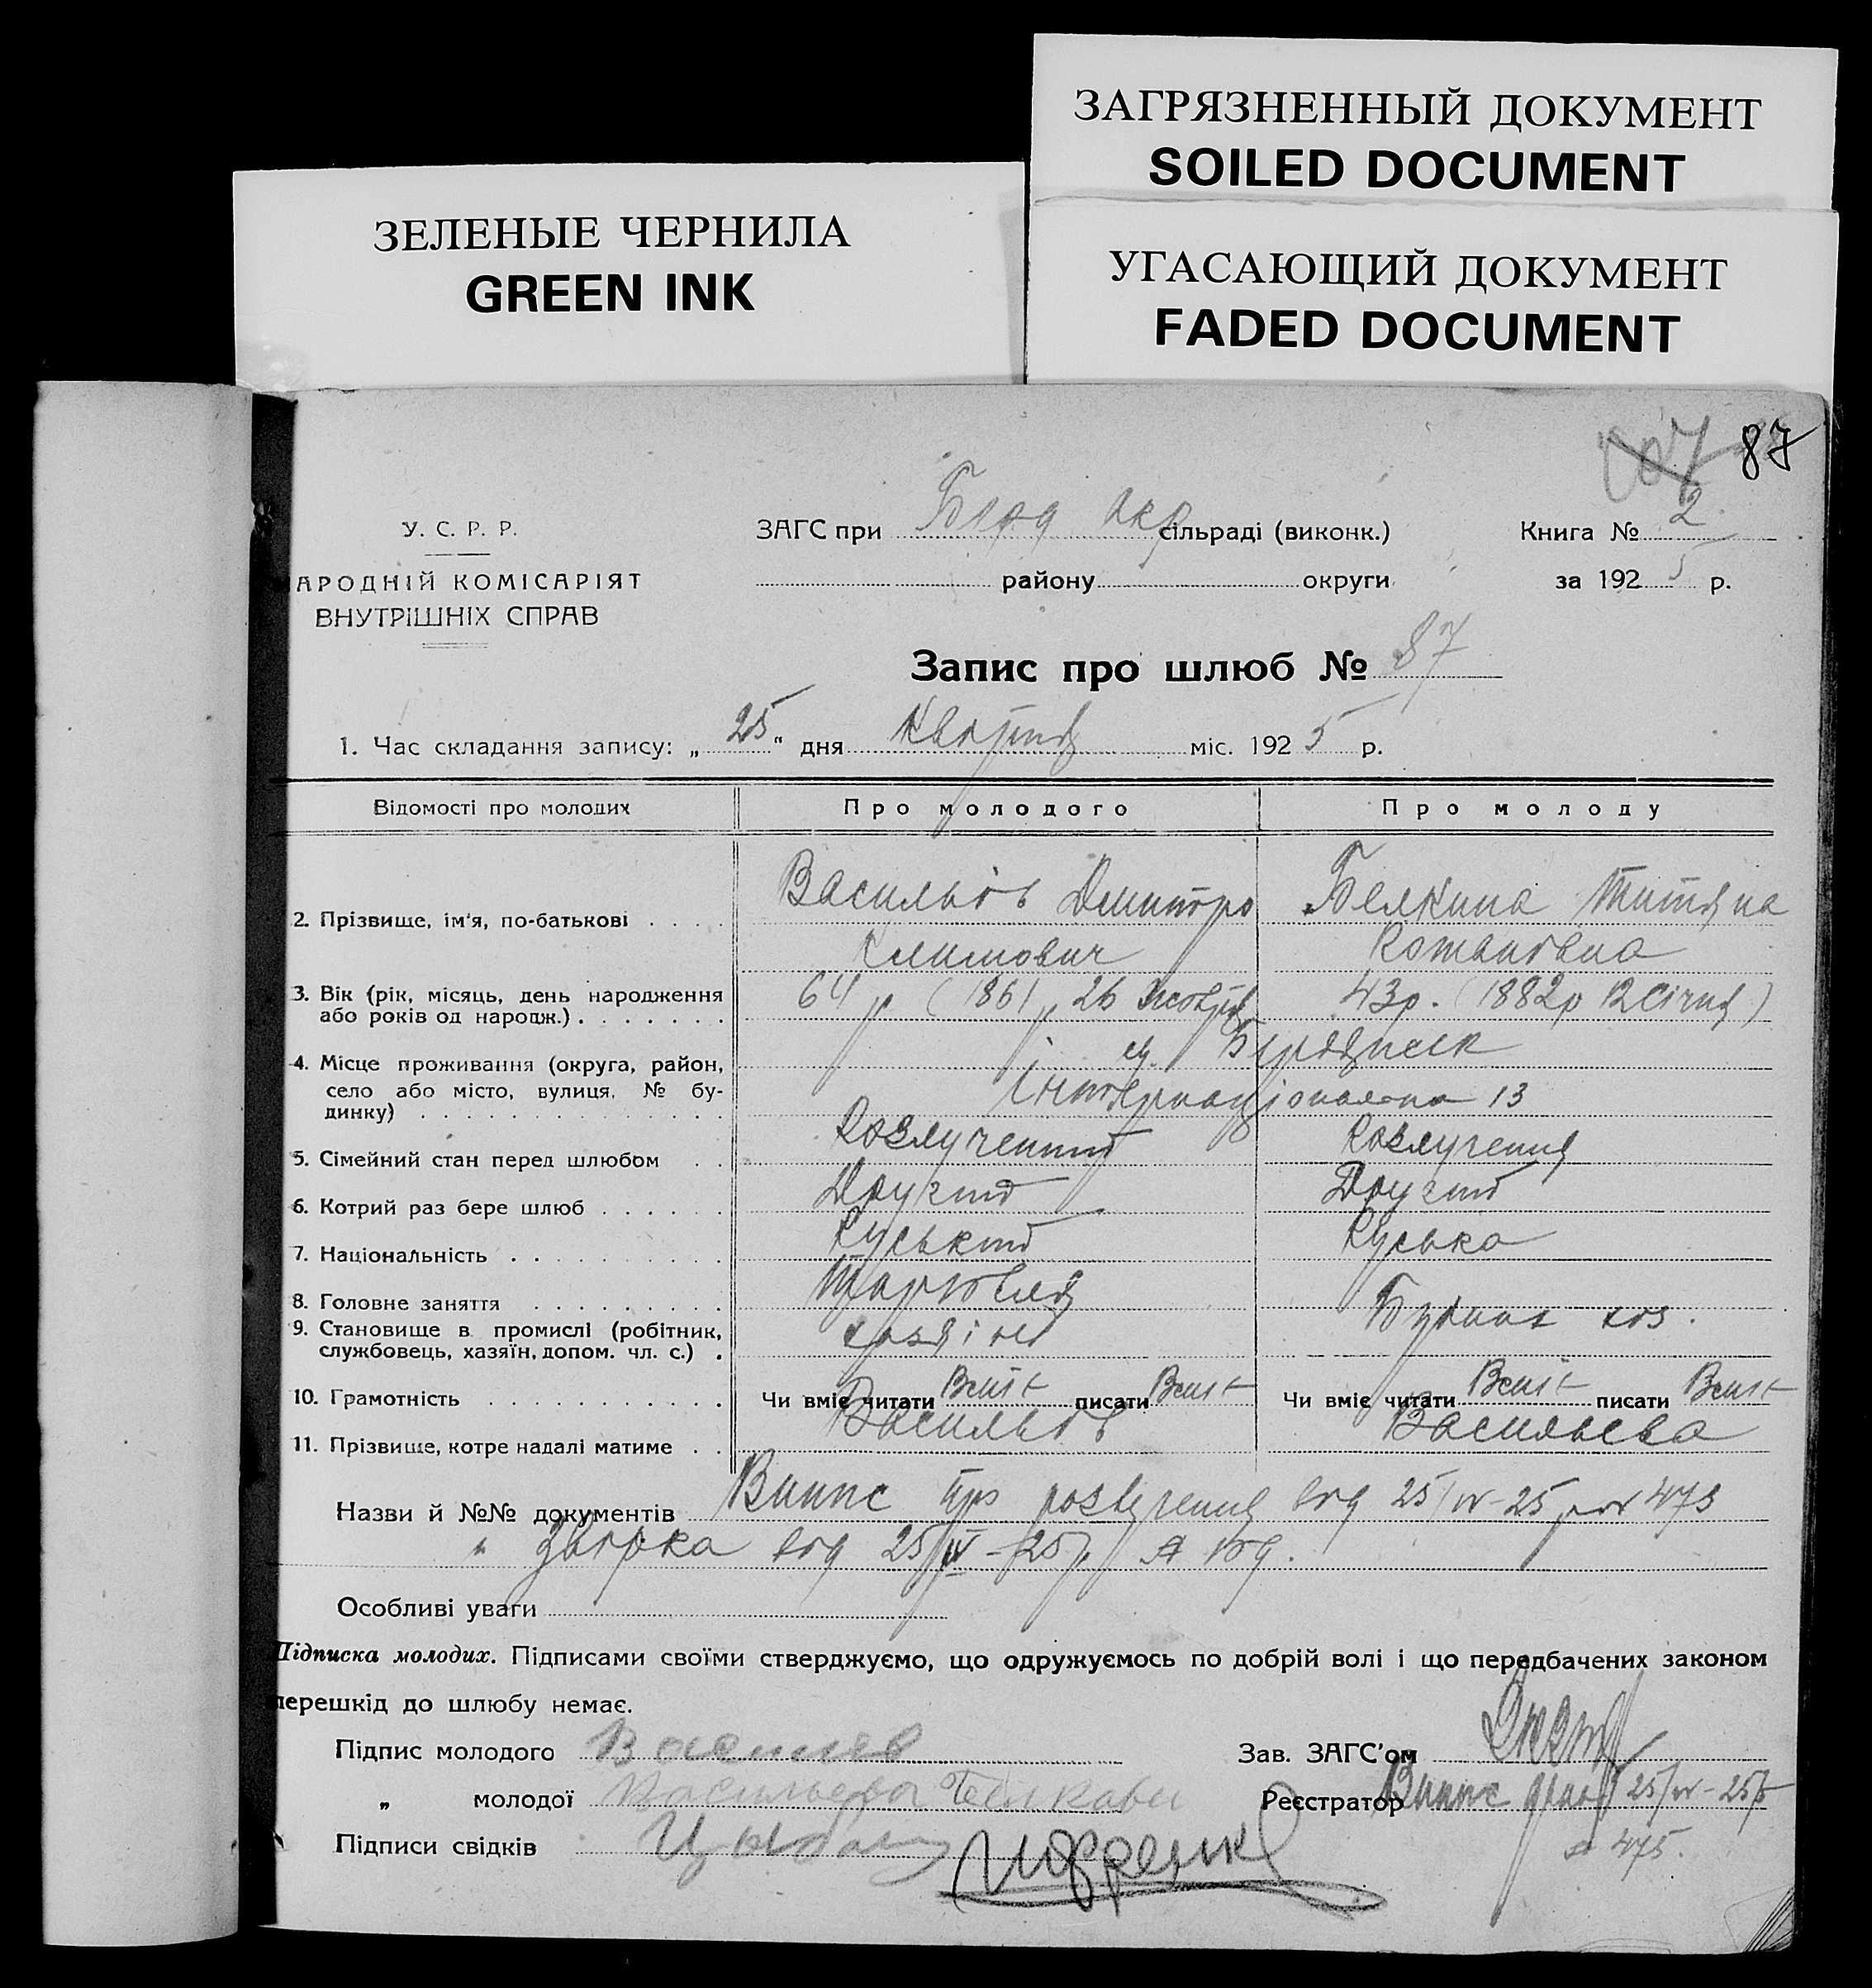 ЗАГРЯЗНЕННЫЙ ДОКУМЕНТ
SOILED DOCUMENT
ЗЕЛЕНЫЕ ЧЕРНИЛА
GREEN INK
УГАСАЮЩИЙ ДОКУМЕНТ
FADED DOCUMENT
87
У. С. Р. Р.
АРОДНІЙ КОМІСАРІЯТ
ВНУТРІШНІХ СПРАВ
ЗАГС при Окр сільраді (виконк.) Книга № 2
району округи за 1925 р.
Запис про шлюб № 87
1. Час складання запису: „25“ дня Квітня міс. 1925 р.
Відомості про молодих Про молодого Про молоду
2. Прізвище, ім'я, по-батькові Васильів Дмитро Белкина Титяна
Климович Романовна
3. Вік (рік, місяць, день народження 64 р (1861 р 26 43р. (1882р 12 Січня)
або років од народж.)
4. Місце проживання (округа, район, м. Бердянськ
село або місто, вулиця, № бу- Інтернаціональна 13
динку)
5. Сімейний стан перед шлюбом Розлучений Розлучения
6. Котрий раз бере шлюб Другий Другий
7. Національність Руський Руська
8. Головне заняття Торговля
9. Становище в промислі (робітник, хазяін
службовець, хазяїн, допом. чл. с.)
10. Грамотність Чи вміє читати Вміє писати Вміє Чи вміє читати Вміє писати Вміє
11. Прізвище, котре надалі матиме Васильів Васильева
Назви й №№ документів Випис про розлучення від 25/IV-25 р № 473
" від 25/IV-25 р
Особливі уваги
Підписка молодих. Підписами своїми стверджуємо, що одружуємось по добрій волі і що передбачених законом
перешкід до шлюбу немає.
Підпис молодого Васильев Зав. ЗАГС'ом
„ молодої Васильева Реєстратор Випис 25/IV-25р
Підписи свідків № 475.